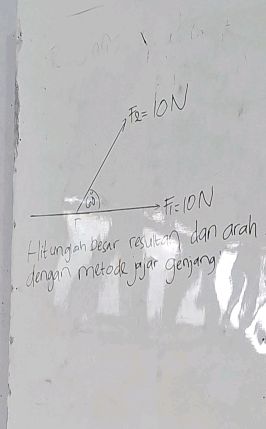 F2=10N
60°
F1=10N
Hitunglah besar resultan dan arah
dengan metode jajar genjang